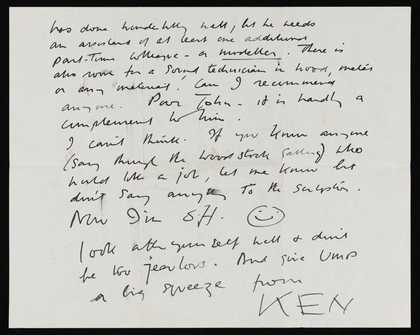 has done wonderfully well, but he needs
an assistant of at least one additional
part-time colleague - a modeller. There is
also room for a sound technician in wood, metal
or any material. Can I recommend
anyone. Poor John - it is hardly a
complement to him.
I can't think. If you know anyone
(say through the Woodstock Gallery) who
would like a job, let me know but
don't say anything to the
Now I'm
Look after yourself well & don't
be too jealous. And give
a big squeeze from
KEN